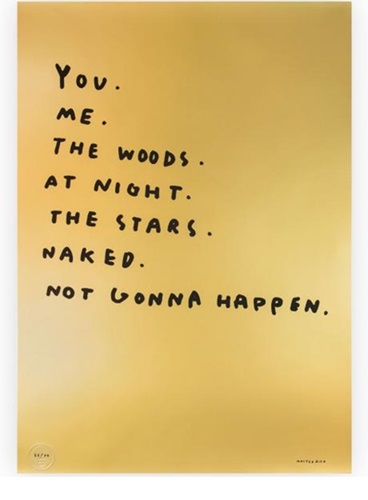 YOU.
ME.
THE WOODS.
AT NIGHT.
THE STARS.
NAKED.
NOT GONNA HAPPEN.